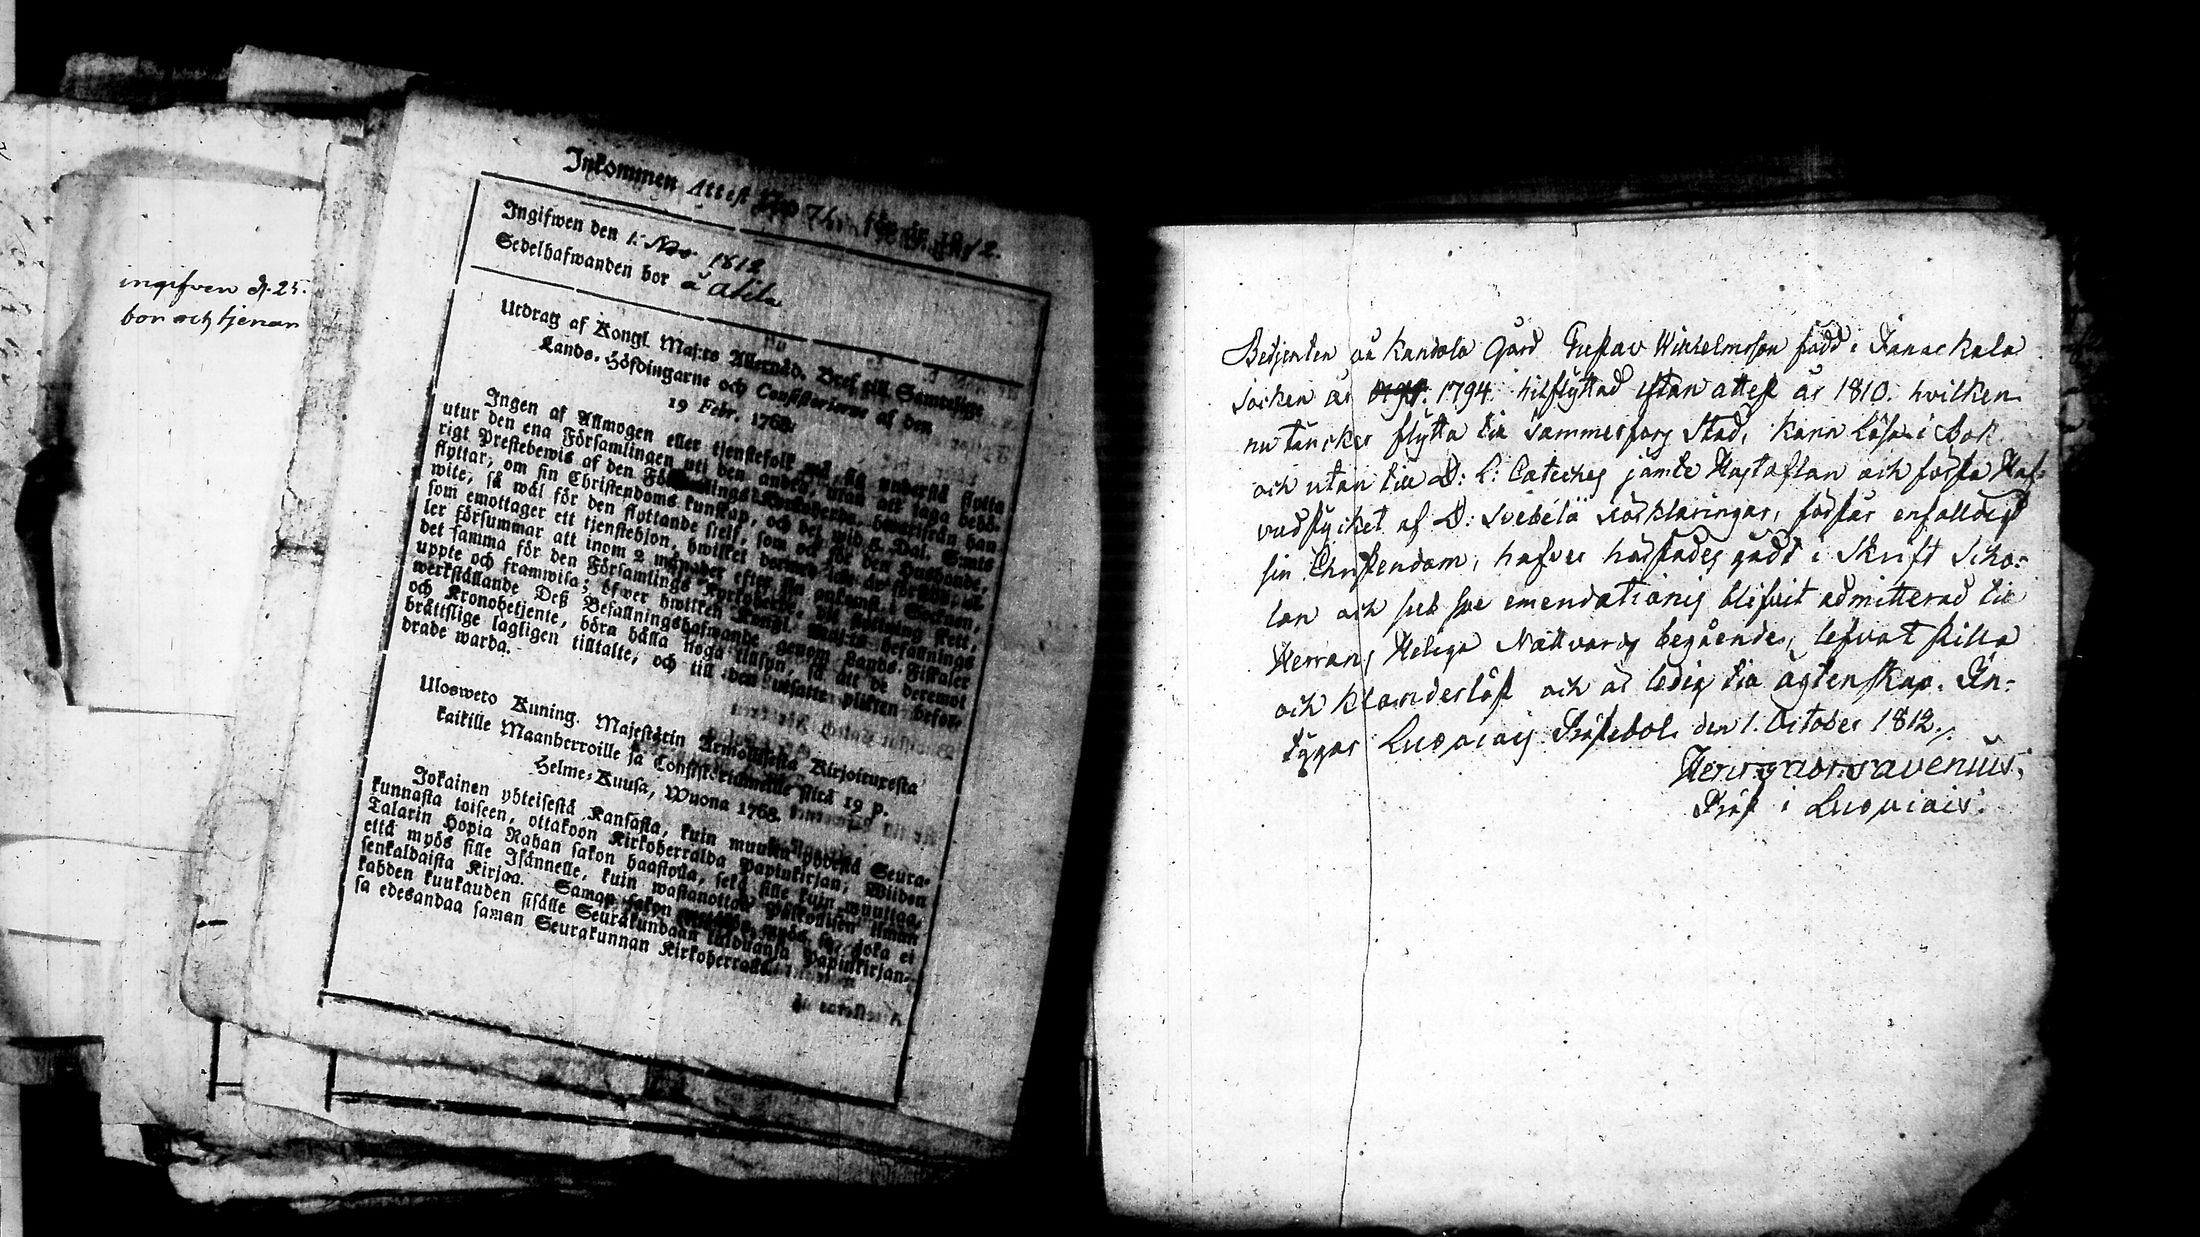 ingifven d. 25.
bor och tjenar
Inkommen Attest No 74 för år 1812.
Ingifwen den 1. Nov. 1812
Sedelhafwanden bor å Ahla
Utdrag af Kongl. Maj:ts Allernåd. Bref till Samtelige
Lands-Höfdingarne och Consistorierne af den
19 Febr. 1768.
Ingen af Allmogen eller tjenstefolk må sig understå flytta
utur den ena Församlingen uti den andra, utan att taga behö-
rigt Prestebewis af den Församlings Kyrkoherde, hwarifrån han
flyttar, om sin Christendoms kunskap, och det wid 5 Dal. S:mts
wite, så wäl för den flyttande sjelf, som ock för den Husbonde,
som emottager ett tjenstehjon, hwilket dermed icke är försedt; el-
ler försummar att inom 2 månader efter sin ankomst i Socknen,
det samma för den Församlings Kyrkoherde, dit flyttning skett,
uppte och framwisa; öfwer hwilket Kongl. Maj:ts Befallnings
werkställande Deß Befallningshafwande genom Lands-Fiskaler
och Kronobetjente, böra hålla noga tillsyn, så att de deremot
bråttslige lagligen tilltalte, och till den utsatte plikten befor-
drade warda.
Ulosweto Kuning. Majestetin Armollisesta Kirjoituxesta
kaikille Maanherroille ja Consistoriumeille siitä 19 p.
Helme-Kuusa, Wuona 1768.
Jokainen yhteisestä Kansasta, kuin muuttaa yhdestä Seura-
kunnasta toiseen, ottakoon Kirkoherralda Papinkirjan, Wiiden
Talarin Hopia Rahan sakon haastolla, sekä sille kuin muuttaa,
että myös sille Isännelle, kuin wastanottaa Palkollisen ilman
senkaldaista Kirjaa. Saman sakon alla myös se, joka ei
kahden kuukauden sisälle Seurakundaan tulduansa Papinkirjan-
sa edesandaa saman Seurakunnan Kirkoherralle.
Betjenten på Kandola Gård Gustav Wilhelmsson född i Janackala
Socken år 1794. hitflyttad utan attest år 1810. hvilken
nu täncker flytta till Tammerfors Stad, kann läsa i Bok
och utan till D: L: Cateches jämte Hustaflan och första Huf-
vudstycket af D: Svebelii förklaringar, förstår enfalldigt
sin Christendom, hafver härstädes gådt i Skrift Scho-
lan och sub spe emendationis blifvit admitterad till
Herrans Heliga Nattvards begående, lefvat stilla
och klanderlöst och är ledig till ägtenskap. In-
tygar Luvia Prästebol den 1. October 1812.
Präst i Luvia